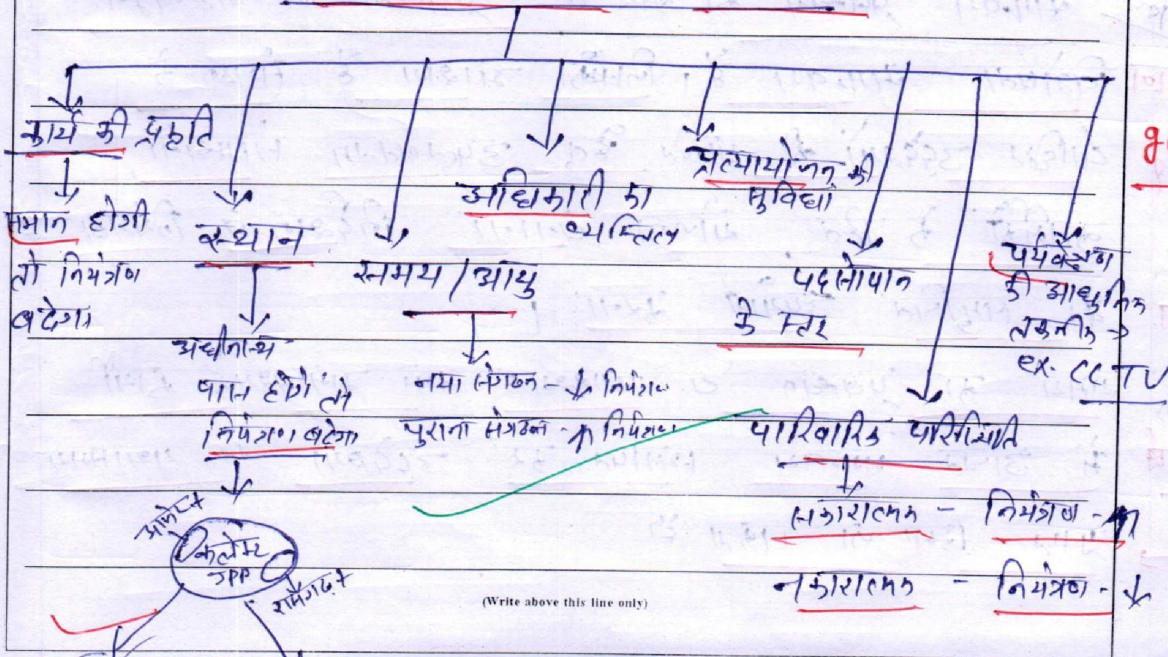 कार्य की प्रकृति
समान होगी
तो नियंत्रण
बढेगा
स्थान
अधीनस्थ
पास होंगे तो
नियंत्रण बढेगा
आमेर
कलेक्टर
JPR
रामगढ
समय / आयु
नया संगठन - ↓ नियंत्रण
पुराना संगठन - ↑ नियंत्रण
अधिकारी का
व्यक्तित्व
प्रत्यायोजन की
सुविधा
पदसोपान
के स्तर
पारिवारिक परिस्थिति
सकारात्मक - नियंत्रण - ↑
नकारात्मक - नियंत्रण - ↓
पर्यवेक्षण
की आधुनिक
तकनीक →
ex. CCTV
(Write above this line only)